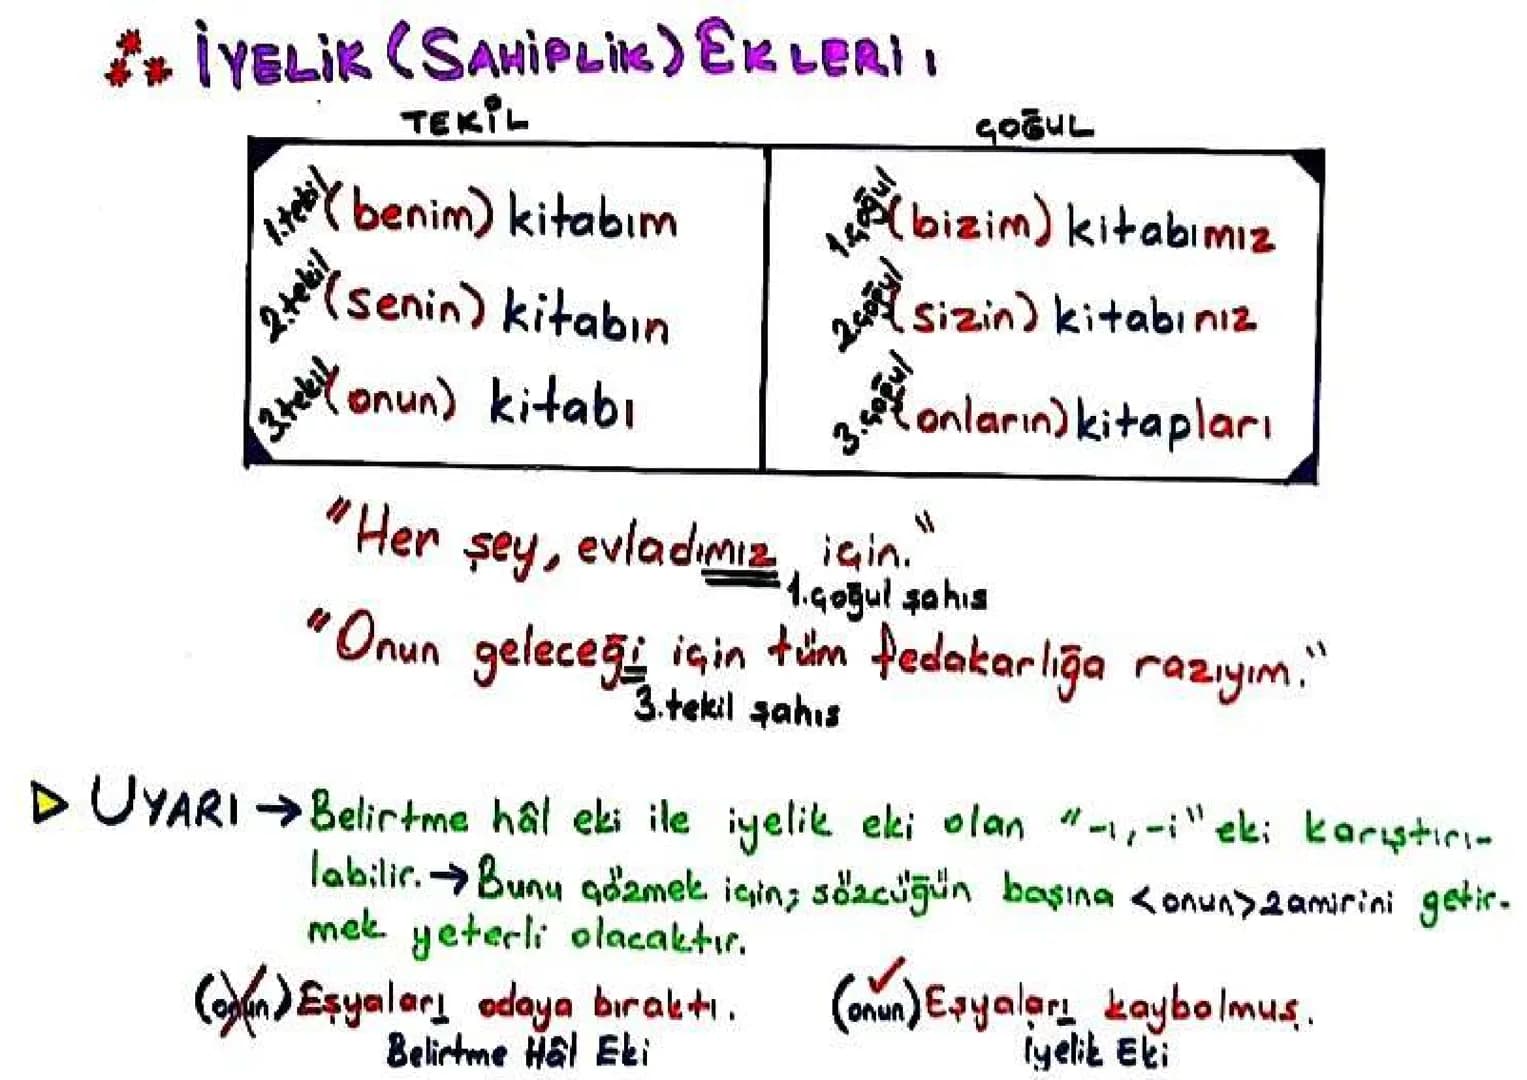 İYELİK (SAHİPLİK) EKLERİ,
TEKİL
ÇOĞUL
1.tekil (benim) kitabım
2.tekil (senin) kitabın
3.tekil (onun) kitabı
1.çoğul (bizim) kitabımız
2.çoğul (sizin) kitabınız
3.çoğul (onların) kitapları
"Her şey, evladımız için."
1.çoğul şahıs
"Onun geleceği için tüm fedakarlığa razıyım."
3.tekil şahıs
UYARI → Belirtme hâl eki ile iyelik eki olan "-ı,-i" eki karıştırı-
labilir. → Bunu çözmek için; sözcüğün başına <onun> zamirini getir-
mek yeterli olacaktır.
(onun) Eşyaları odaya bıraktı.
Belirtme Hâl Eki
(onun) Eşyaları kaybolmuş.
İyelik Eki